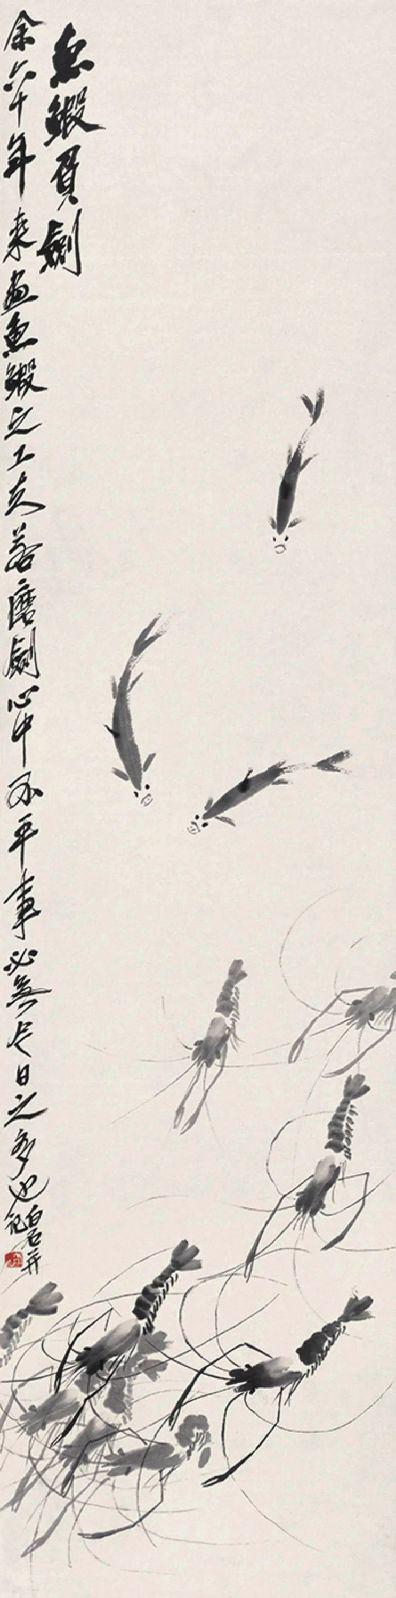 魚鰕劍
余六十年來畫魚鰕之工夫若磨劍心中不平事必無今日之多也白石并記